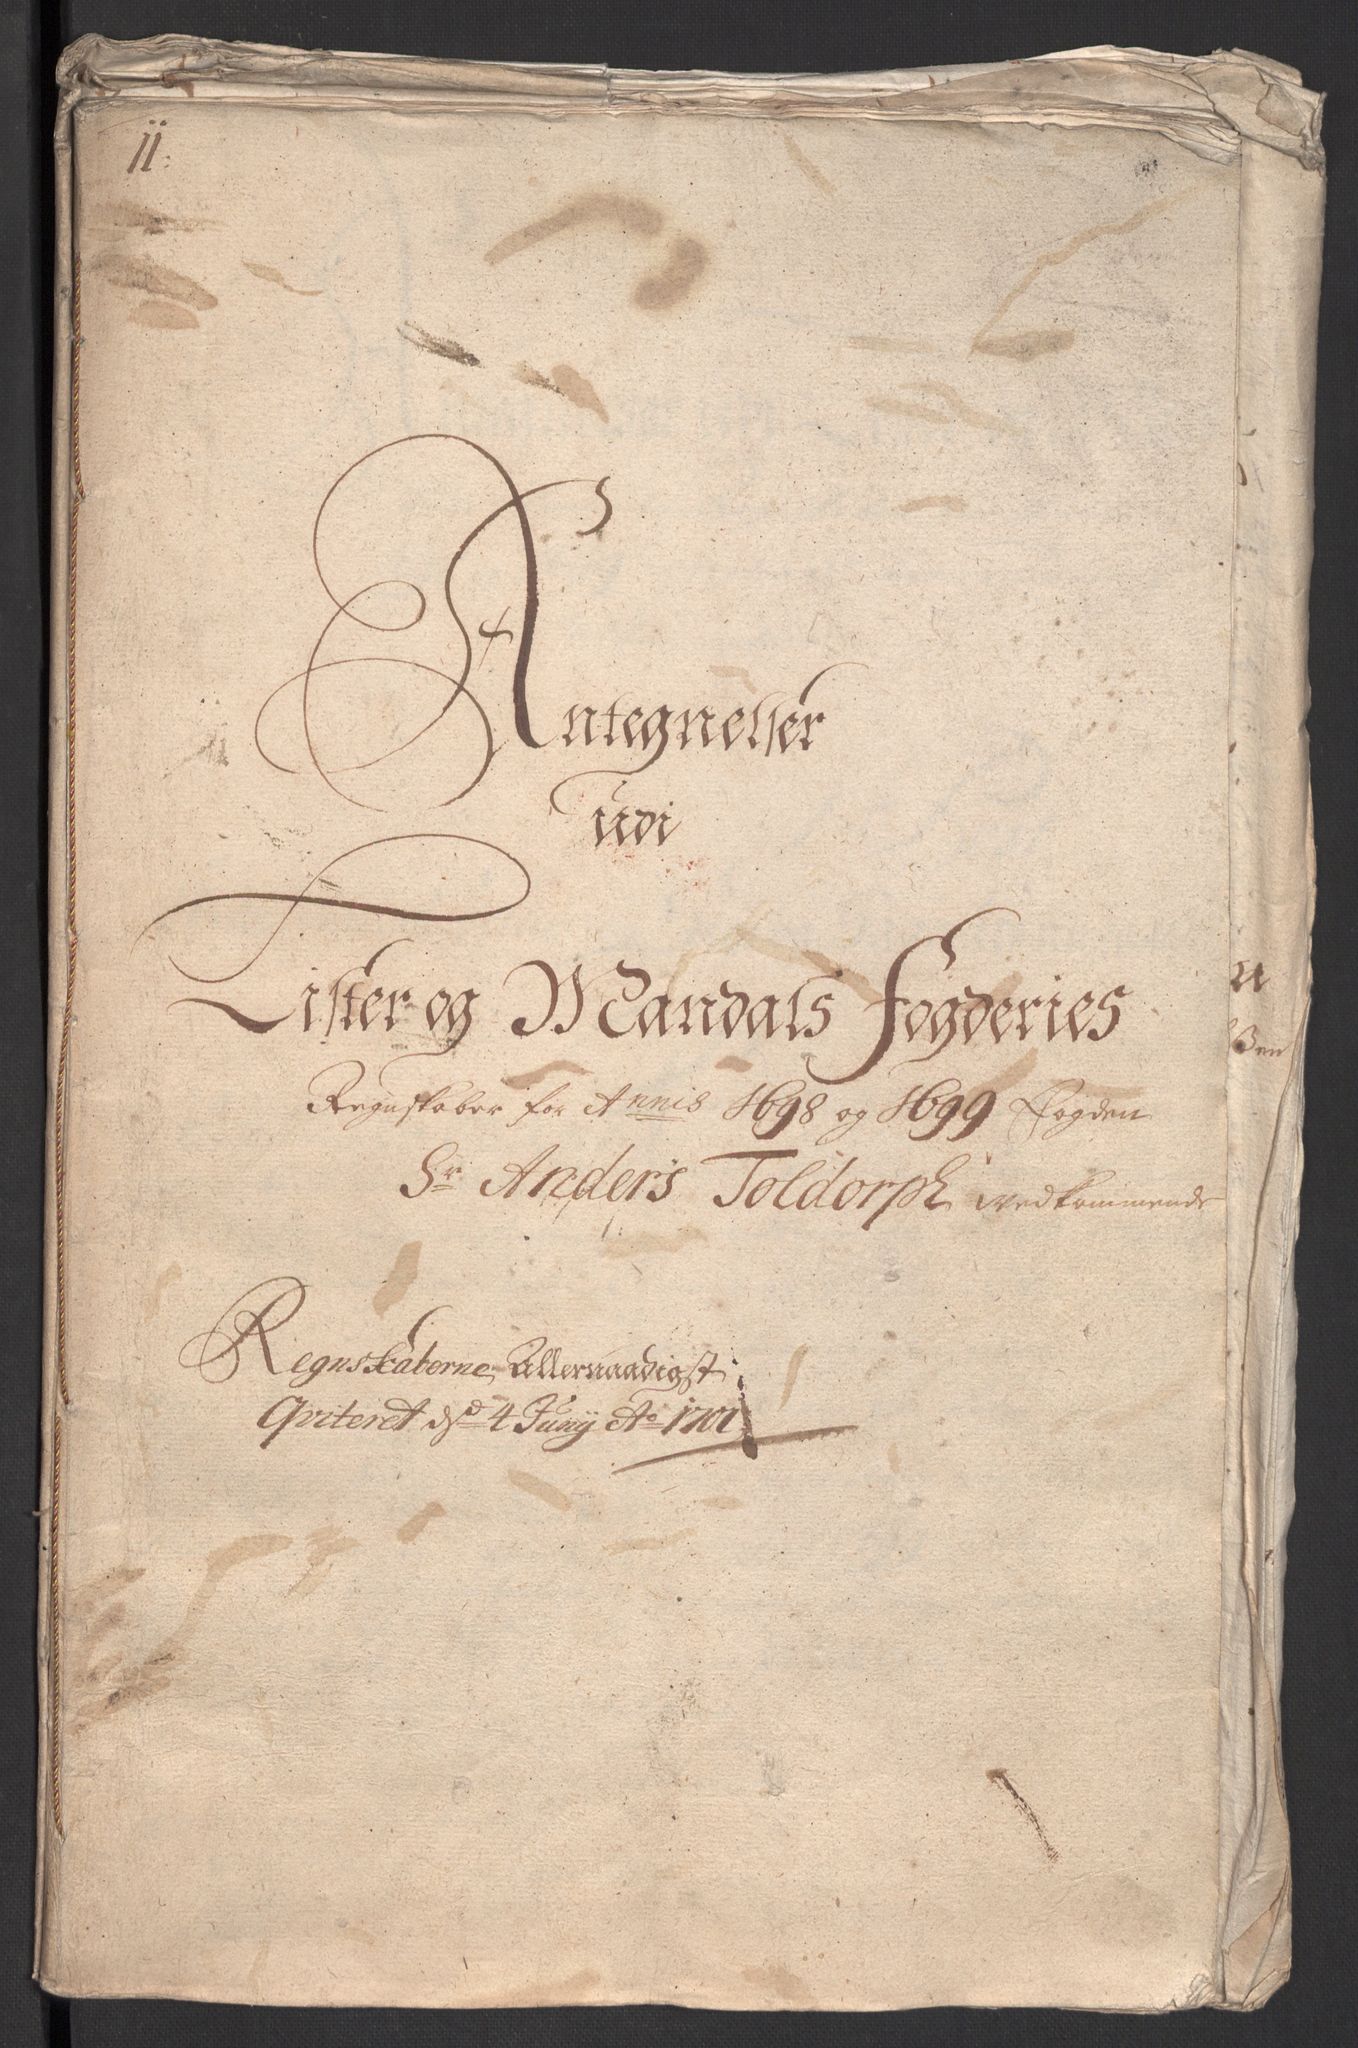 11.
Antegnelser
udi
Lister og Mandals Fogderies
Regnskaber for Annis 1698 og 1699 Fogden
Sr Anders Toldorph vedkommende
Regnskaberne Allernaadigst
Qviteret dsd 4 Junij Ao 1701